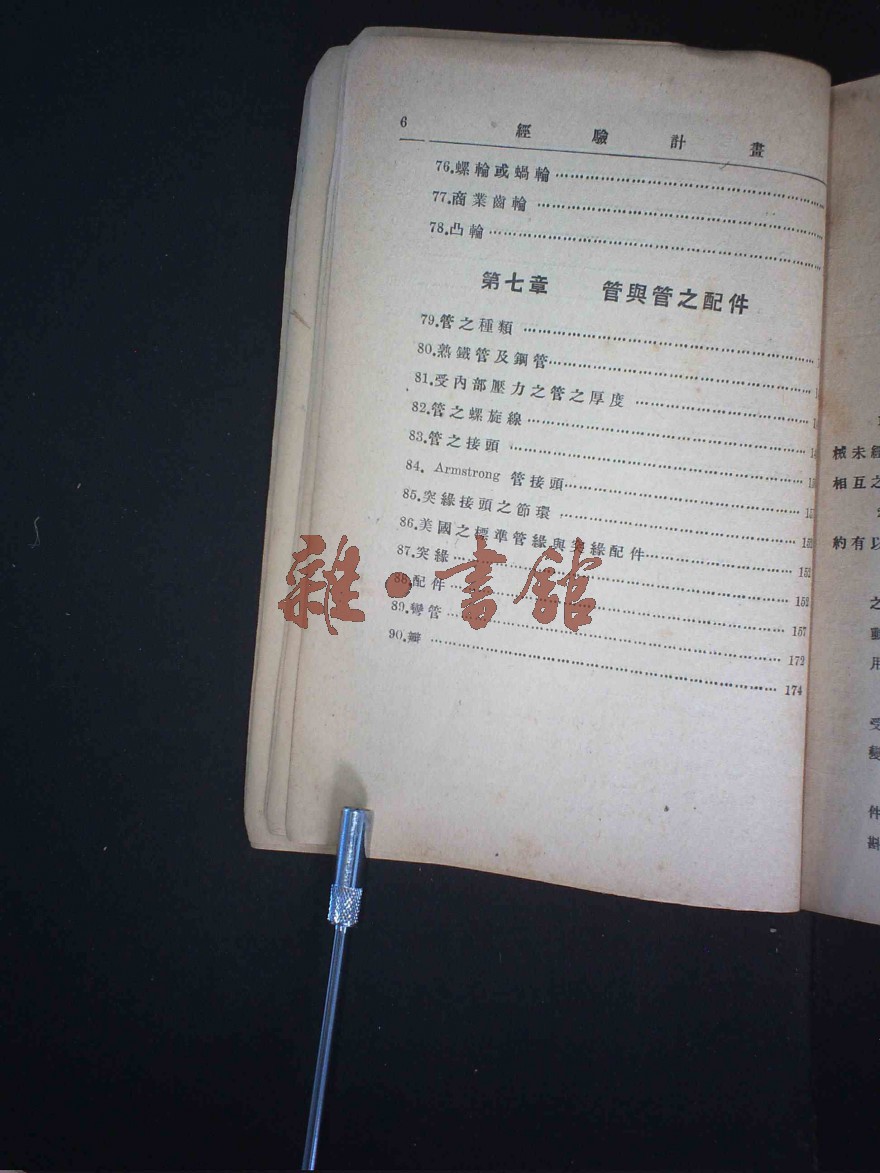 6 經驗計畫
76.螺輪或蝸輪
77.商業齒輪
78.凸輪
第七章 管與管之配件
79.管之種類
80.熟鐵管及鋼管
81.受內部壓力之管之厚度
82.管之螺旋線
83.管之接頭
84. Armstrong 管接頭
85.突緣接頭之節環
86.美國之標準管緣與突緣配件
87.突緣 152
88.配件 152
89.彎管 157
90.瓣 172
174
雜·書館
械未經
相互之
約有以
之
用
受
變
件
斟